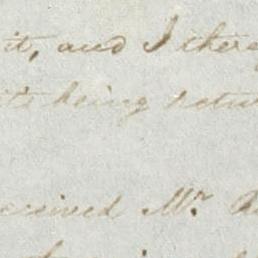 it, and I there
its being retur
eceived Mr.